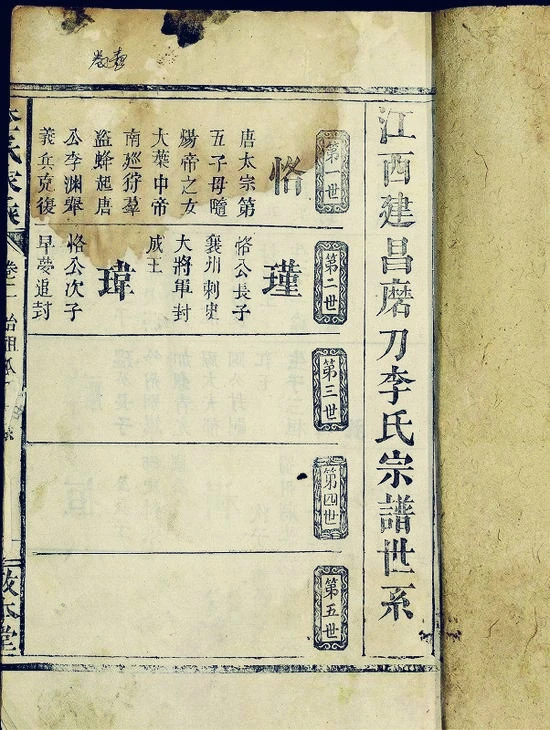 江西建昌磨刀李氏宗譜世系
第一世
恪
唐太宗第
五子母隨
煬帝之女
大葉中帝
南廵狩羣
盜蜂起唐
公李渊舉
義兵克復
第二世
瑾
恪公長子
襄州刺史
大將軍封
成王
瑋
恪公次子
早夢追封
第三世
第四世
第五世
李氏家乘
卷二
敦本堂